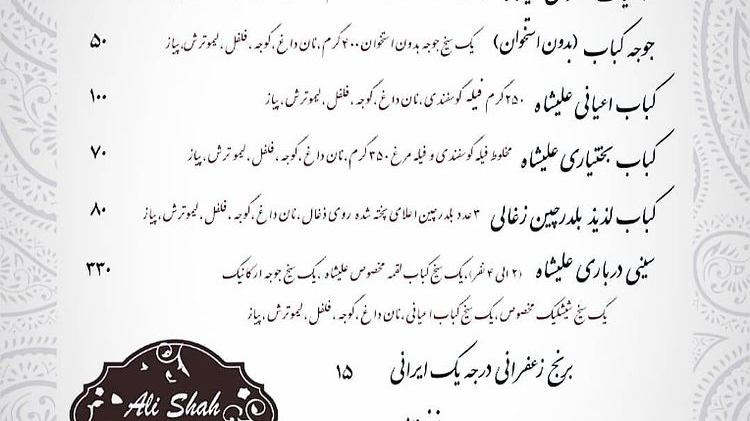 جوجه کباب (بدون استخوان) یک سیخ جوجه بدون استخوان ۴۰۰گرم،نان داغ،گوجه،فلفل،لیموترش،پیاز ۵۰
کباب اعیانی علیشاه ۲۵۰گرم فیله گوسفندی،نان داغ،گوجه،فلفل،لیموترش،پیاز ۱۰۰
کباب بختیاری علیشاه مخلوط فیله گوسفندی و فیله مرغ ۳۵۰گرم،نان داغ،گوجه،فلفل،لیموترش،پیاز ۷۰
کباب لذیذ بلدرچین زغالی ۳عدد بلدرچین اعلای پخته شده روی ذغال،نان داغ،گوجه،فلفل،لیموترش،پیاز ۸۰
سینی درباری علیشاه (۲ الی ۴ نفر)،یک سیخ کباب لقمه مخصوص علیشاه،یک سیخ جوجه ارگانیک ۳۳۰
یک سیخ شیشلیک مخصوص،یک سیخ کباب اعیانی،نان داغ،گوجه،فلفل،لیموترش،پیاز
برنج زعفرانی درجه یک ایرانی ۱۵
Ali Shah